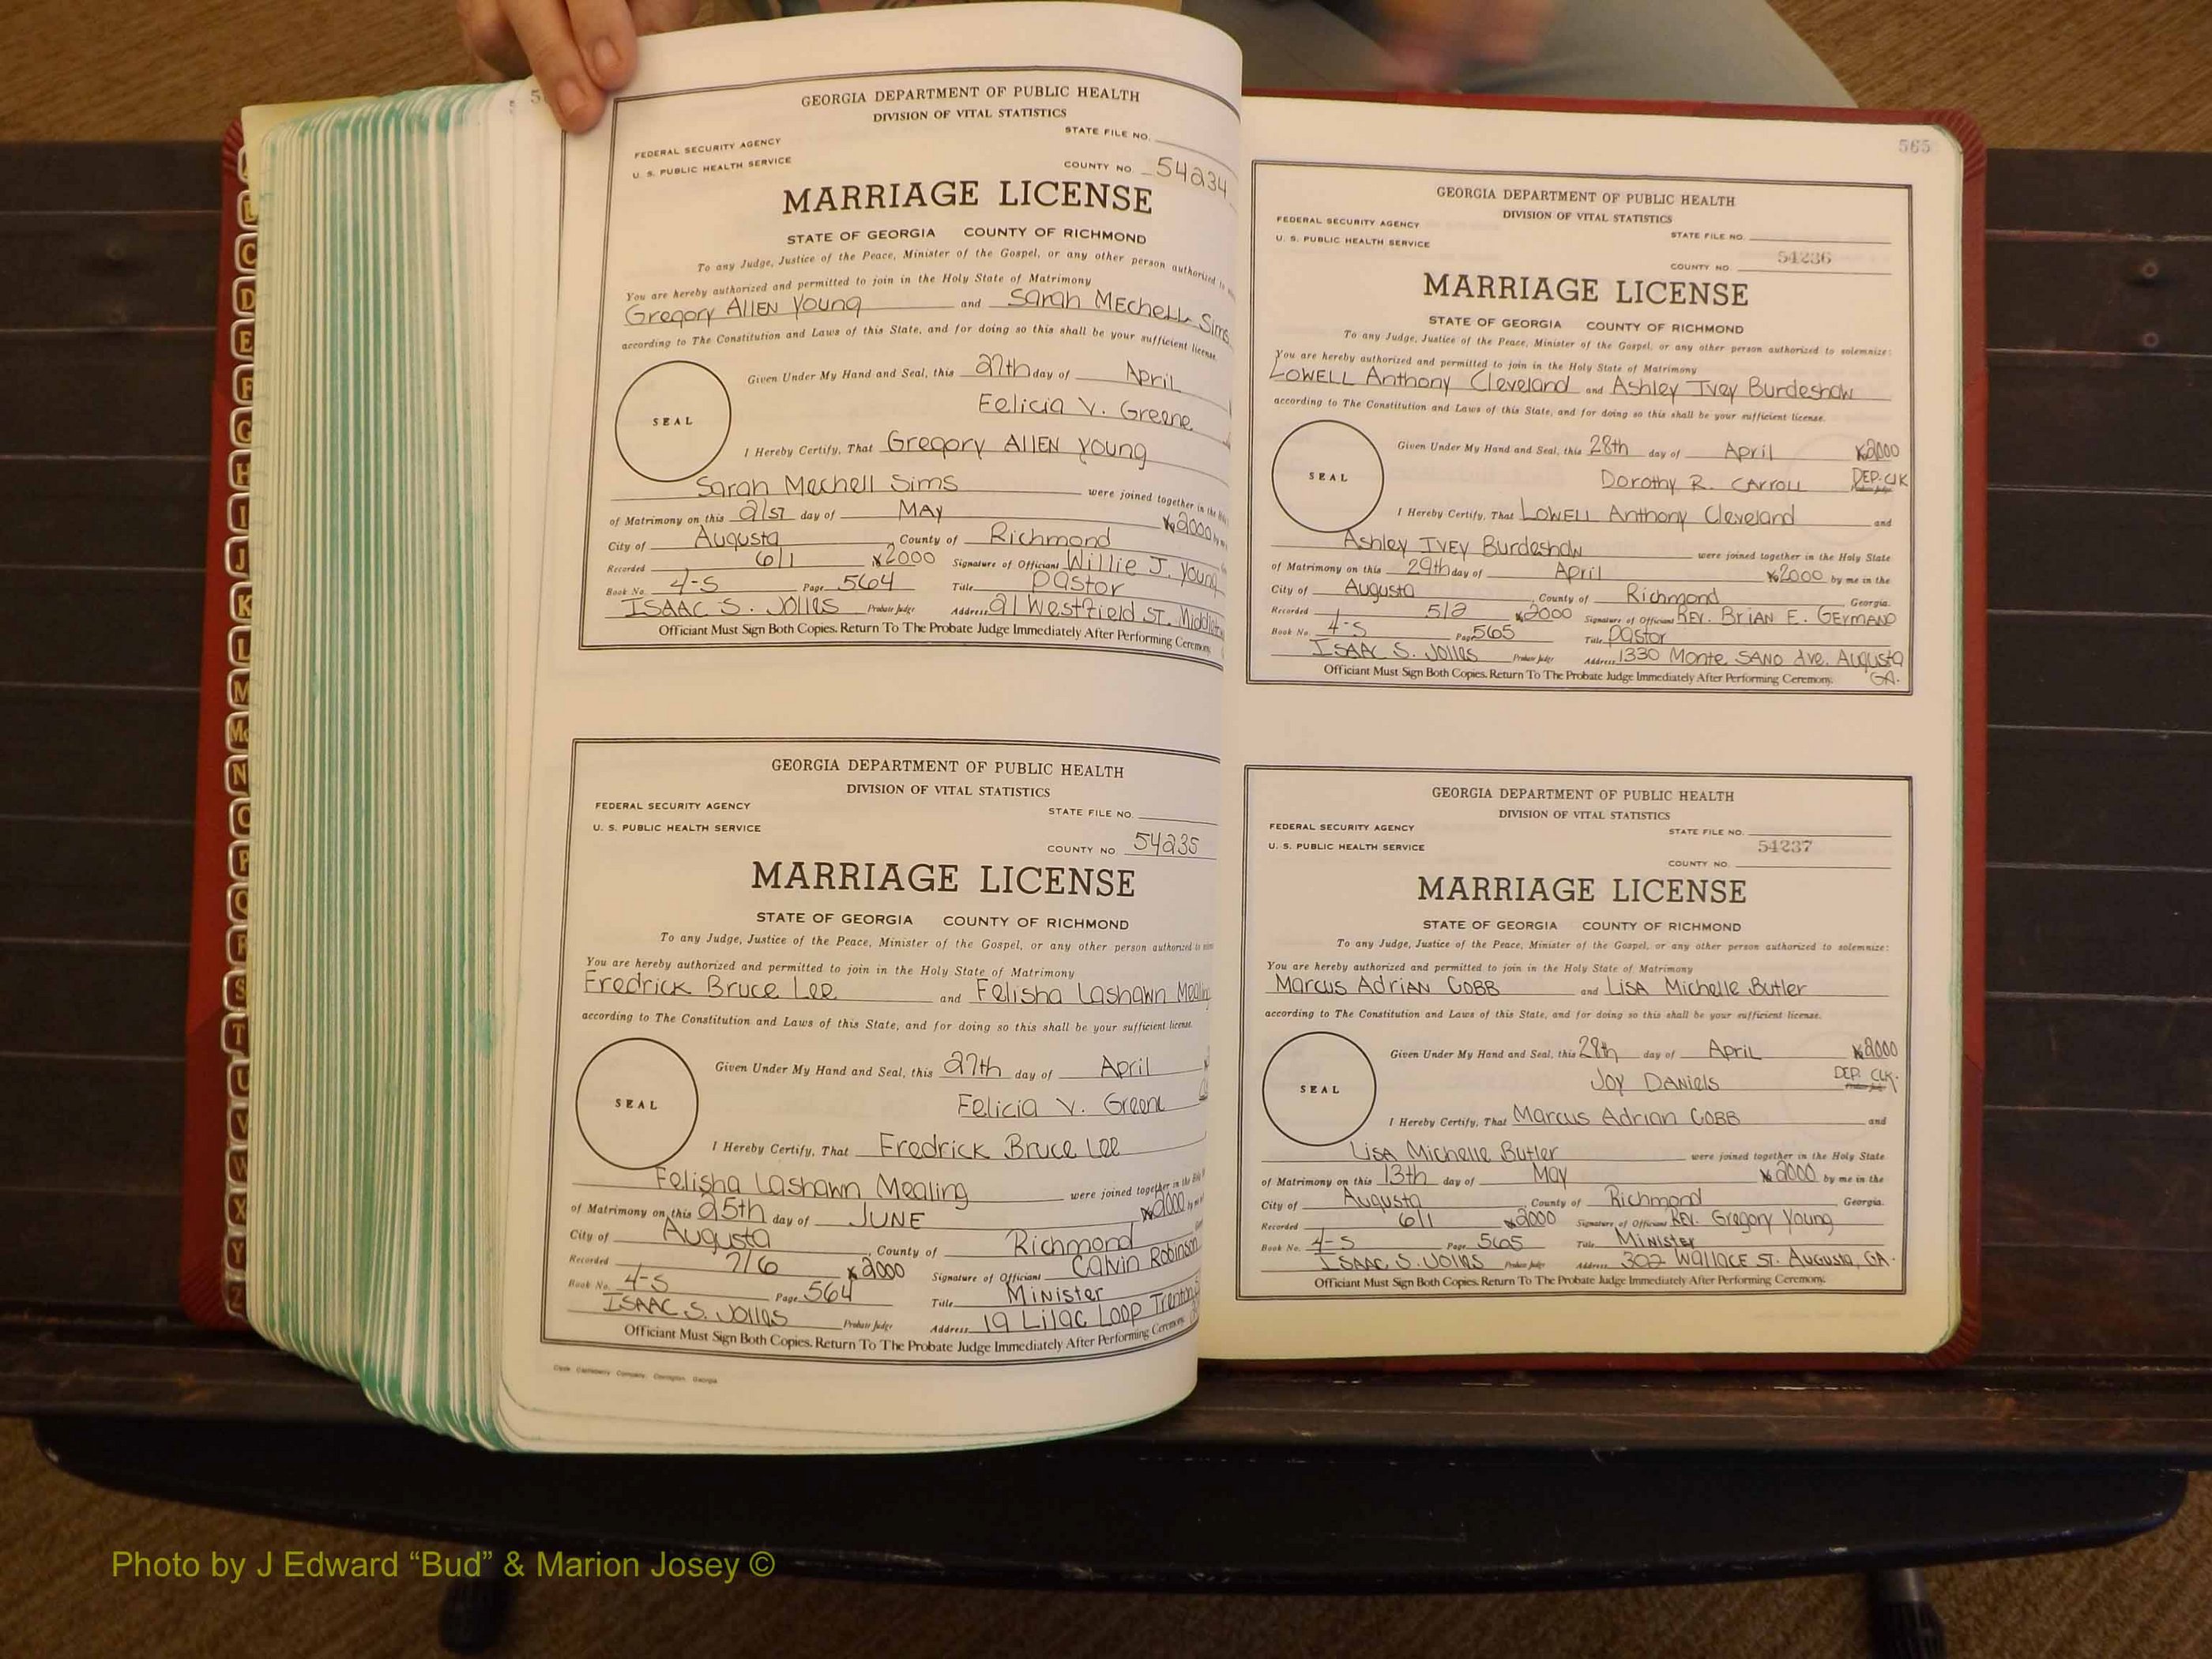 GEORGIA DEPARTMENT OF PUBLIC HEALTH
DIVISION OF VITAL STATISTICS
FEDERAL SECURITY AGENCY
STATE FILE NO.
U. S. PUBLIC HEALTH SERVICE
COUNTY NO. 54234
MARRIAGE LICENSE
STATE OF GEORGIA COUNTY OF RICHMOND
To any Judge, Justice of the Peace, Minister of the Gospel, or any other person authorized to
You are hereby authorized and permitted to join in the Holy State of Matrimony
Gregory Allen Young and Sarah Mechell Sims
according to The Constitution and Laws of this State, and for doing so this shall be your sufficient license.
Given Under My Hand and Seal, this 27th day of April
Felicia V. Greene
SEAL
I Hereby Certify, That Gregory Allen Young
Sarah Mechell Sims were joined together in the
of Matrimony on this 21st day of May 2000
City of Augusta, County of Richmond
Recorded 6/1 2000 Signature of Officiant Willie J. Young
Book No. 4-S Page 564 Title Pastor
ISAAC S. Jolles Probate Judge Address 21 Westfield St.
Officiant Must Sign Both Copies. Return To The Probate Judge Immediately After Performing Ceremony.
GEORGIA DEPARTMENT OF PUBLIC HEALTH
DIVISION OF VITAL STATISTICS
FEDERAL SECURITY AGENCY
STATE FILE NO.
U. S. PUBLIC HEALTH SERVICE
COUNTY NO. 54235
MARRIAGE LICENSE
STATE OF GEORGIA COUNTY OF RICHMOND
To any Judge, Justice of the Peace, Minister of the Gospel, or any other person authorized to
You are hereby authorized and permitted to join in the Holy State of Matrimony
Fredrick Bruce Lee and Felisha Lashawn Mealing
according to The Constitution and Laws of this State, and for doing so this shall be your sufficient license.
Given Under My Hand and Seal, this 27th day of April
Felicia V. Greene
SEAL
I Hereby Certify, That Fredrick Bruce Lee
Felisha Lashawn Mealing were joined together in the
of Matrimony on this 25th day of June 2000
City of Augusta, County of Richmond
Recorded 7/6 2000 Signature of Officiant Calvin Robinson
Book No. 4-S Page 564 Title Minister
ISAAC S. Jolles Probate Judge Address 19 Lilac Loop Trenton
Officiant Must Sign Both Copies. Return To The Probate Judge Immediately After Performing Ceremony.
565
GEORGIA DEPARTMENT OF PUBLIC HEALTH
DIVISION OF VITAL STATISTICS
FEDERAL SECURITY AGENCY
STATE FILE NO.
U. S. PUBLIC HEALTH SERVICE
COUNTY NO. 54236
MARRIAGE LICENSE
STATE OF GEORGIA COUNTY OF RICHMOND
To any Judge, Justice of the Peace, Minister of the Gospel, or any other person authorized to solemnize:
You are hereby authorized and permitted to join in the Holy State of Matrimony
Lowell Anthony Cleveland and Ashley Ivey Burdeshaw
according to The Constitution and Laws of this State, and for doing so this shall be your sufficient license.
Given Under My Hand and Seal, this 28th day of April 2000
Dorothy R. Carroll Dep. Clk
SEAL
I Hereby Certify, That Lowell Anthony Cleveland and
Ashley Ivey Burdeshaw were joined together in the Holy State
of Matrimony on this 29th day of April 2000 by me in the
City of Augusta, County of Richmond Georgia.
Recorded 5/2 2000 Signature of Officiant Rev. Brian E. Germano
Book No. 4-S Page 565 Title Pastor
ISAAC S. Jolles Probate Judge Address 1330 Monte Sano Ave. Augusta
GA.
Officiant Must Sign Both Copies. Return To The Probate Judge Immediately After Performing Ceremony.
GEORGIA DEPARTMENT OF PUBLIC HEALTH
DIVISION OF VITAL STATISTICS
FEDERAL SECURITY AGENCY
STATE FILE NO.
U. S. PUBLIC HEALTH SERVICE
54237
COUNTY NO.
MARRIAGE LICENSE
STATE OF GEORGIA COUNTY OF RICHMOND
To any Judge, Justice of the Peace, Minister of the Gospel, or any other person authorized to solemnize:
You are hereby authorized and permitted to join in the Holy State of Matrimony
Marcus Adrian Cobb and Lisa Michelle Butler
according to The Constitution and Laws of this State, and for doing so this shall be your sufficient license.
Given Under My Hand and Seal, this 28th day of April 2000
Joy Daniels Dep. Clk.
SEAL
I Hereby Certify, That Marcus Adrian Cobb and
Lisa Michelle Butler were joined together in the Holy State
of Matrimony on this 13th day of May 2000 by me in the
City of Augusta, County of Richmond Georgia.
Recorded 6/1 2000 Signature of Officiant Rev. Gregory Young
Book No. 4-S Page 565 Title Minister
ISAAC S. Jolles Probate Judge Address 302 Wallace St. Augusta, GA.
Officiant Must Sign Both Copies. Return To The Probate Judge Immediately After Performing Ceremony.
C
D
E
F
G
H
I
J
K
L
M
Mc
N
O
P
Q
R
S
T
U
V
W
X
Y
Z
Photo by J Edward “Bud” & Marion Josey ©